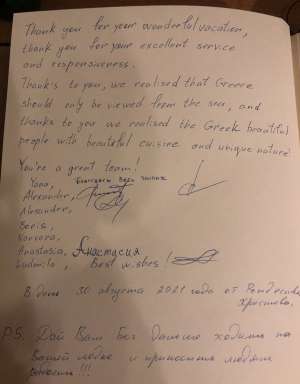 Thank you for your wonderful vacation,
thank you for your excellent service
and responsiveness.
Thank's to you, we realised that Greece
should only be viewed from the sea, and
thanks to you we realised the Greek beautiful
people with beautiful cuisine and unique nature!
You're a great team!
Yana, Благодарю Весь
Alexander,
Alexander,
Boris,
Varvara,
Anastasia, Анастасия
Ludmila, best wishes!
В день 30 августа 2021 года от Рождества
Христова.
P.S. Дай Вам Бог Далее ходить на
Вашей лодке и приносить людям